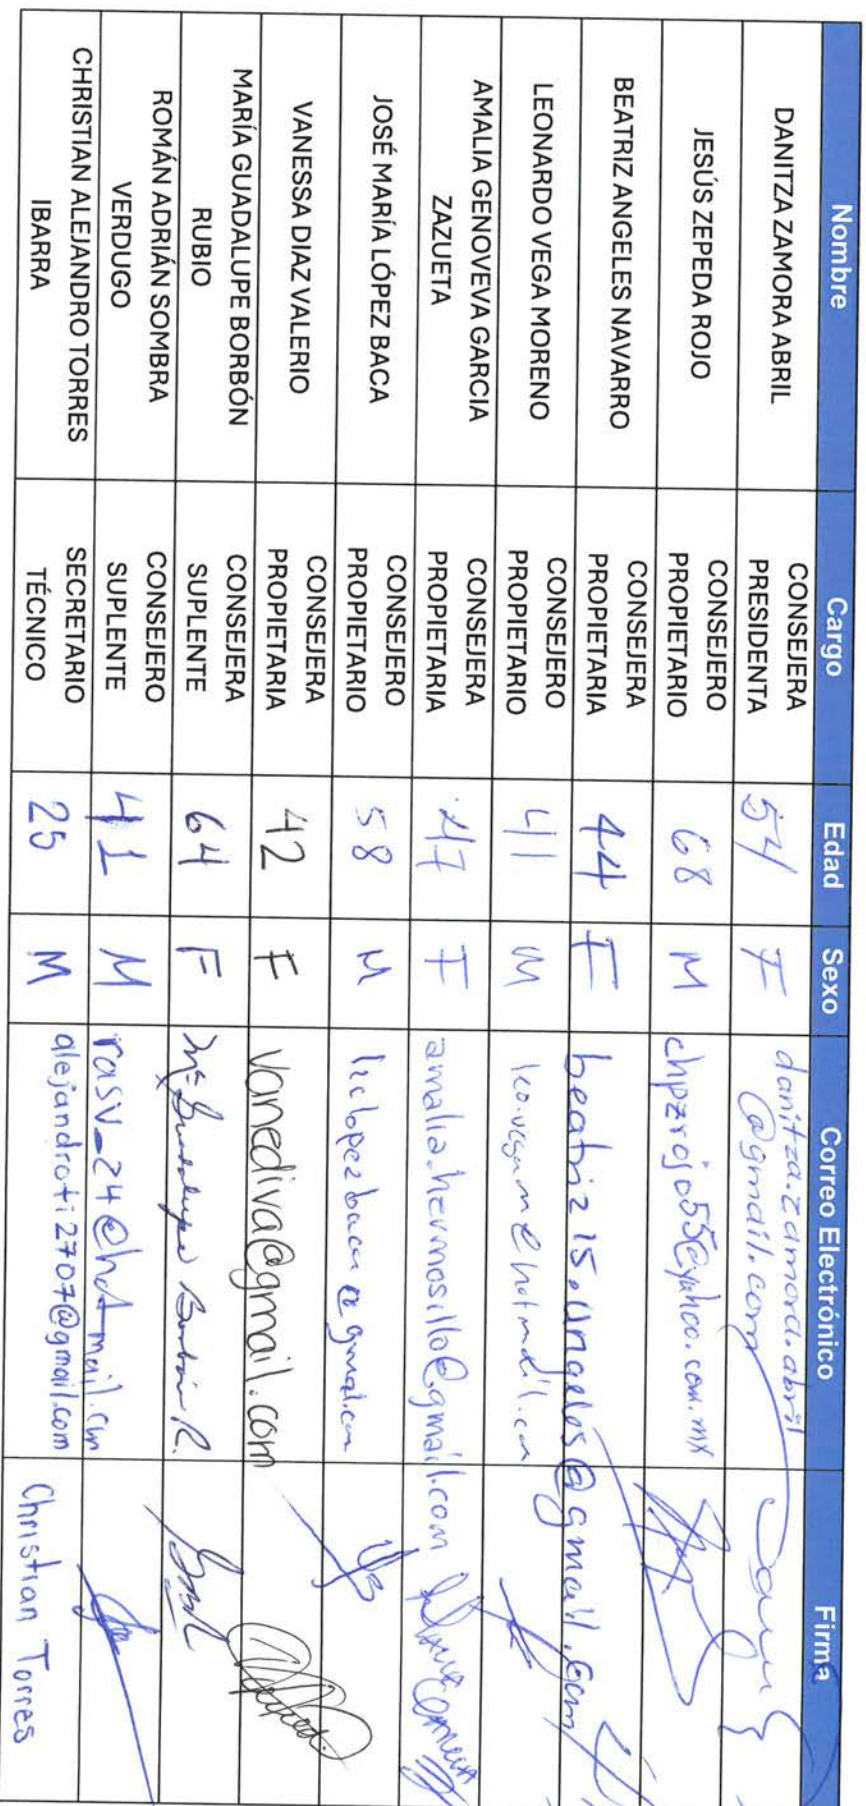 Nombre Cargo Edad Sexo Correo Electrónico Firma
DANITZA ZAMORA ABRIL
CONSEJERA
PRESIDENTA
54 F
danitza.zamora.abril
@gmail.com
JESÚS ZEPEDA ROJO
CONSEJERO
PROPIETARIO
68 M chpzrojo55@yahoo.com.mx
BEATRIZ ANGELES NAVARRO
CONSEJERA
PROPIETARIA
44 F beatriz15.angeles@gmail.com
LEONARDO VEGA MORENO
CONSEJERO
PROPIETARIO
41 M leo.vegam@hotmail.com
AMALIA GENOVEVA GARCIA
ZAZUETA
CONSEJERA
PROPIETARIA
47 F amalia.hermosillo@gmail.com
JOSÉ MARÍA LÓPEZ BACA
CONSEJERO
PROPIETARIO
58 M liclopezbaca@gmail.com
VANESSA DIAZ VALERIO
CONSEJERA
PROPIETARIA
42 F vanediva@gmail.com
MARÍA GUADALUPE BORBÓN
RUBIO
CONSEJERA
SUPLENTE
64 F Ma Guadalupe Borbón R.
ROMÁN ADRIÁN SOMBRA
VERDUGO
CONSEJERO
SUPLENTE
41 M rasv_24@hotmail.com
CHRISTIAN ALEJANDRO TORRES
IBARRA
SECRETARIO
TÉCNICO
25 M alejandroti2707@gmail.com Christian Torres